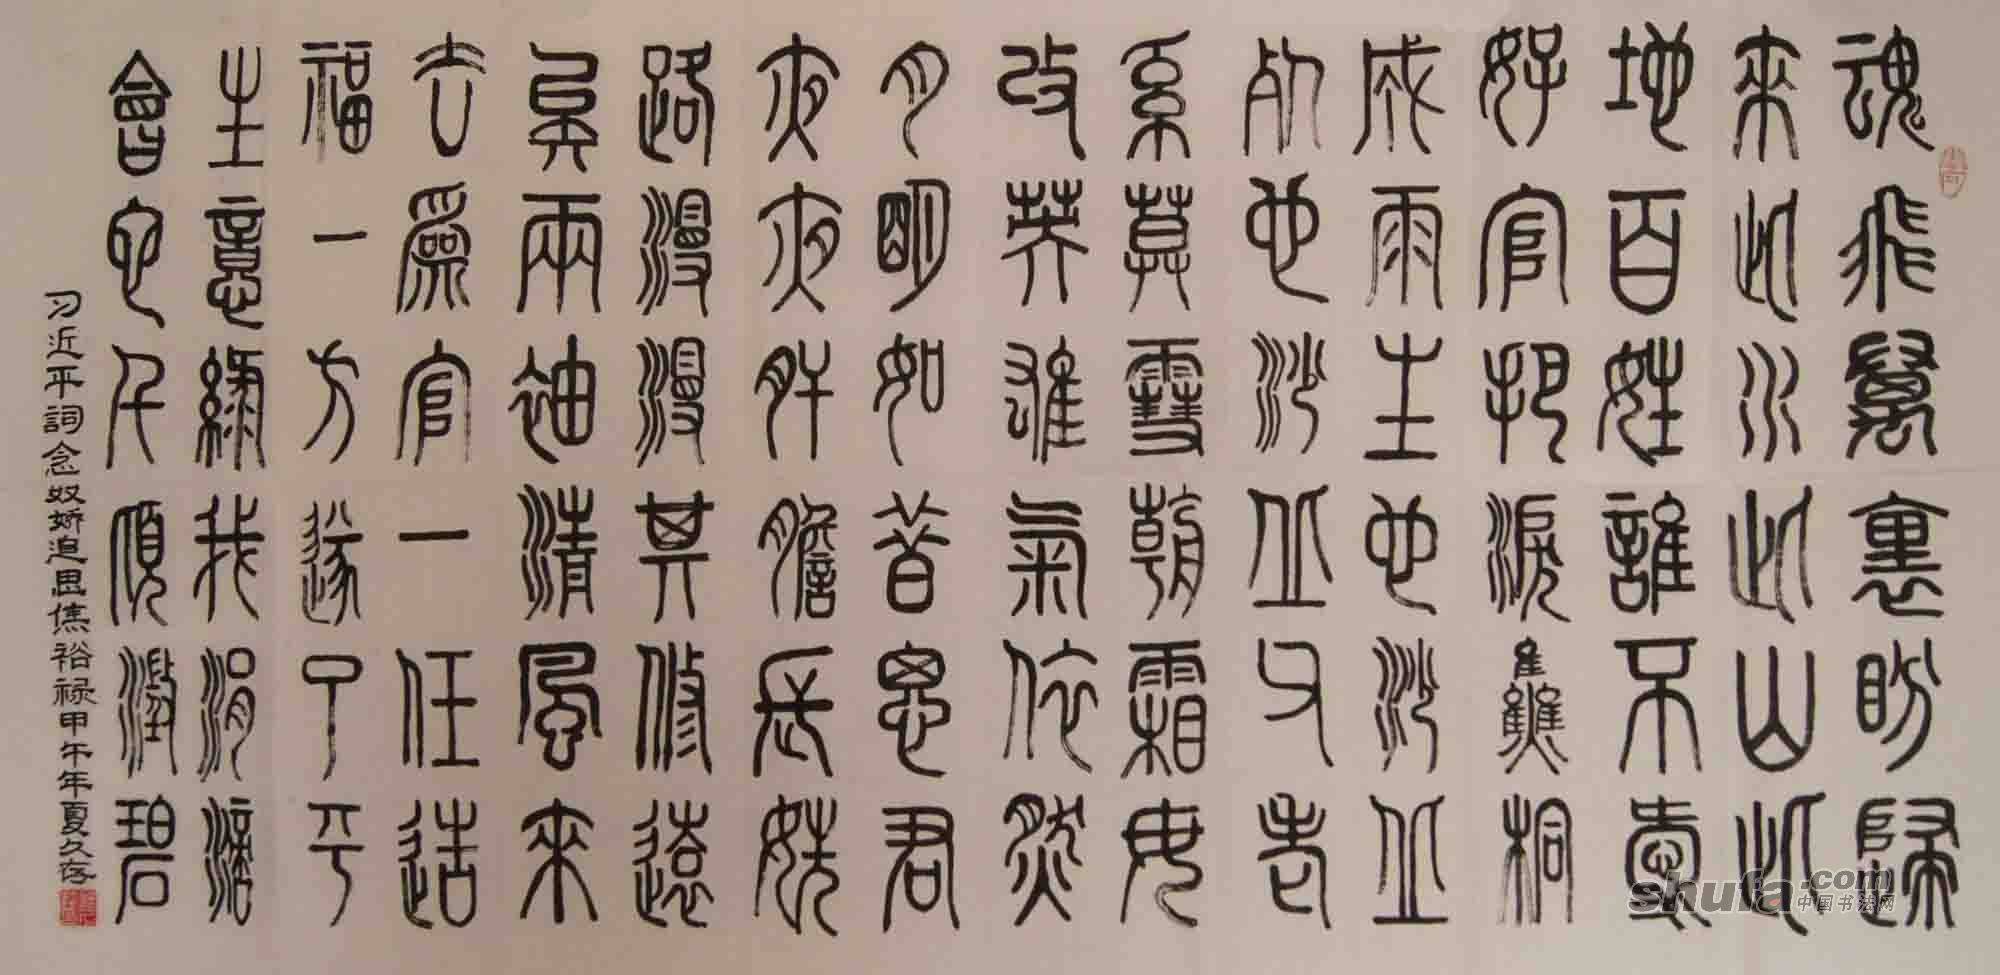 魂飛萬裏盼歸
來此水此山此
地百姓誰不愛
好官把淚焦桐
成雨生也沙丘
死也沙丘父老
系莫雪朝霜毋
改英雄氣依然
月明如昔思君
夜夜肝膽長姺
路漫漫其修遠
矣兩袖清風來
去爲官一任造
福一方遂了平
生意綠我涓滴
會它千頃澂碧
习近平詞念奴娇追思焦裕禄甲午年夏久存
shufa.com
中国书法网